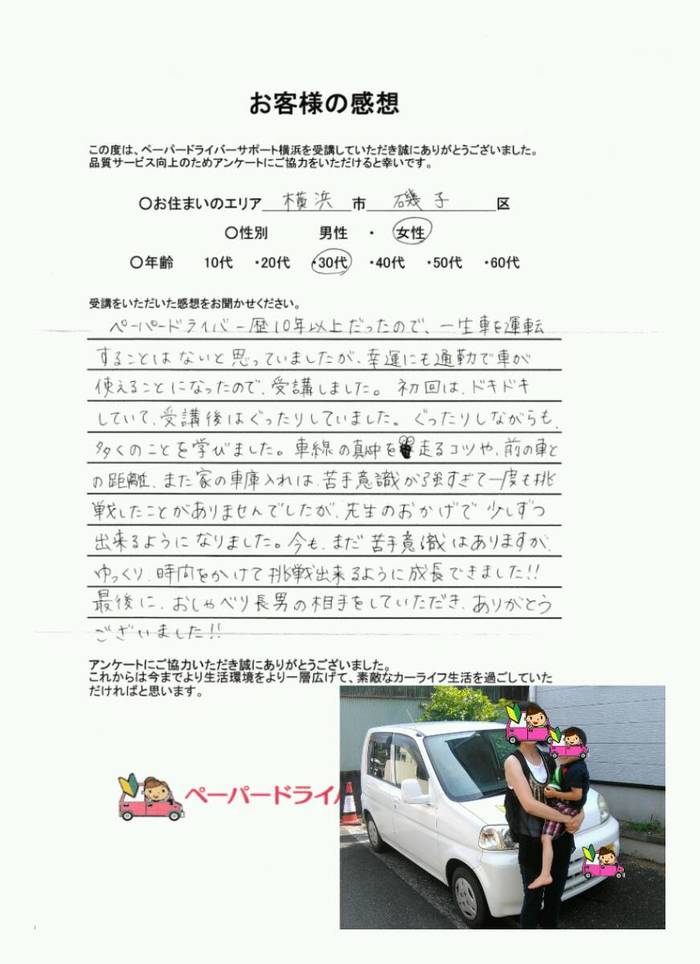 お客様の感想
この度は、ペーパードライバーサポート横浜を受講していただき誠にありがとうございました。
品質サービス向上のためアンケートにご協力をいただけると幸いです。
〇お住まいのエリア 横浜 市 磯子 区
〇性別 男性 ・ 女性
〇年齢 10代 ・20代 ・30代 ・40代 ・50代 ・60代
受講をいただいた感想をお聞かせください。
ペーパードライバー歴10年以上だったので、一生車を運転
することはないと思っていましたが、幸運にも通勤で車が
使えることになったので、受講しました。初回は、ドキドキ
していて、受講後はぐったりしていました。ぐったりしながらも、
多くのことを学びました。車線の真中を走るコツや、前の車と
の距離、また家の車庫入れは、苦手意識が強すぎて一度も挑
戦したことがありませんでしたが、先生のおかげで少しずつ
出来るようになりました。今も、まだ苦手意識はありますが、
ゆっくり、時間をかけて挑戦出来るように成長できました!!
最後に、おしゃべり長男の相手をしていただき、ありがとう
ございました!!
アンケートにご協力いただき誠にありがとうございました。
これからは今までより生活環境をより一層広げて、素敵なカーライフ生活を過ごしていた
だければと思います。
ペーパードライバ